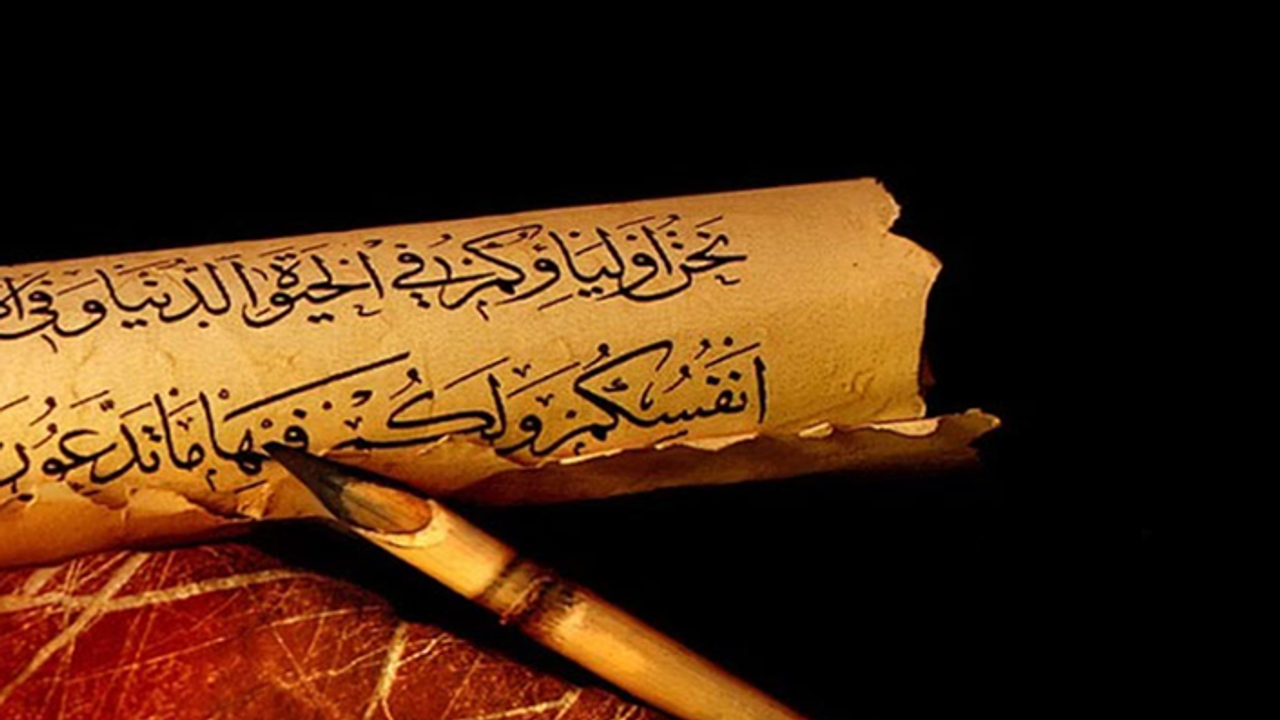 نَحْنُ اَوْلِيَاؤُكُمْ فِي الْحَيٰوةِ الدُّنْيَا وَفِي
اَنْفُسُكُمْ وَلَكُمْ فِيْهَا مَا تَدَّعُوْنَ